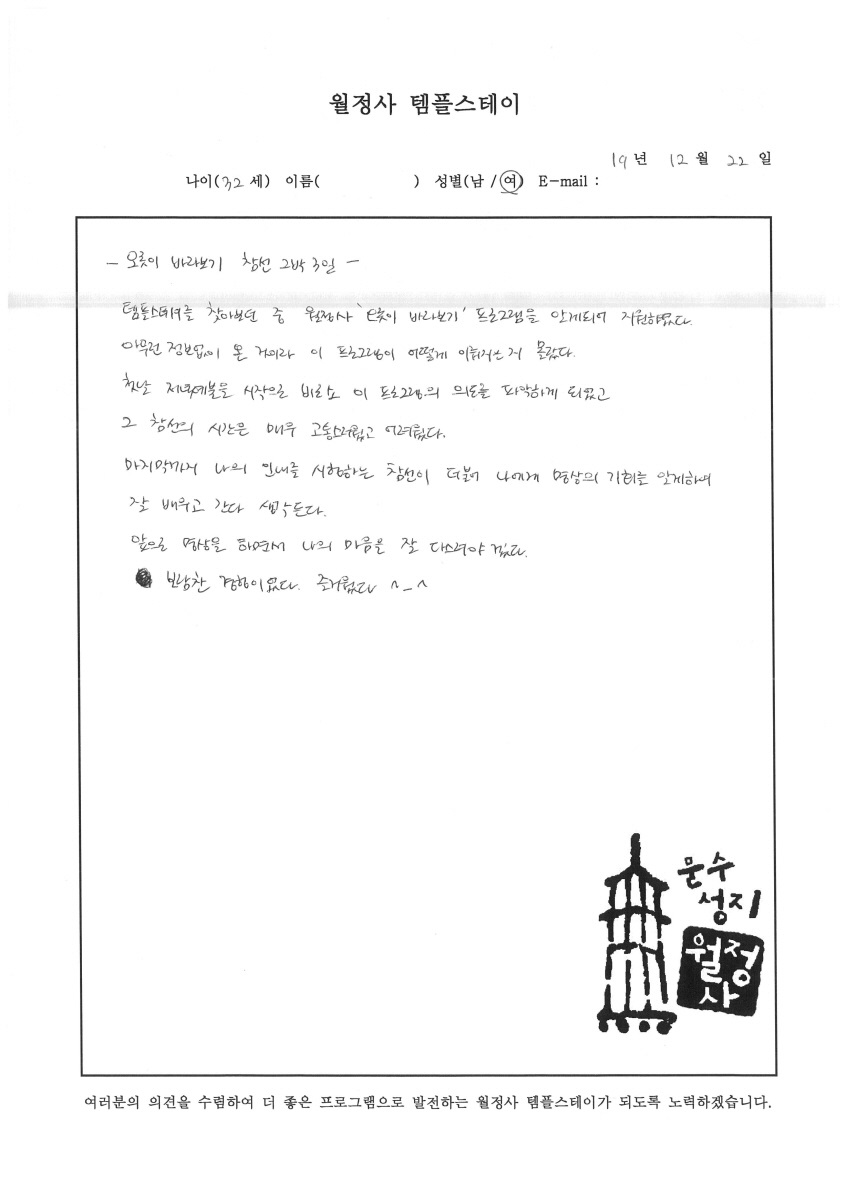 월정사 템플스테이
19년 12월 22일
나이(32세) 이름( ) 성별(남 / 여) E-mail :
- 오롯이 바라보기 참선 2박 3일 -
템플스테이를 찾아보던 중 월정사 '오롯이 바라보기' 프로그램을 알게되어 지원하였다.
아무런 정보없이 온 거이라 이 프로그램이 어떻게 이뤄지는지 몰랐다.
첫날 저녁예불을 시작으로 비로소 이 프로그램의 의도를 파악하게 되었고
그 참선의 시간은 매우 고통스러웠고 어려웠다.
마지막까지 나의 인내를 시험하는 참선이 더불어 나에게 명상의 기회를 알게하여
잘 배우고 간다 생각든다.
앞으로 명상을 하면서 나의 마음을 잘 다스려야 겠다.
보람찬 경험이었다. 즐거웠다 ^_^
문수
성지
월정
사
여러분의 의견을 수렴하여 더 좋은 프로그램으로 발전하는 월정사 템플스테이가 되도록 노력하겠습니다.